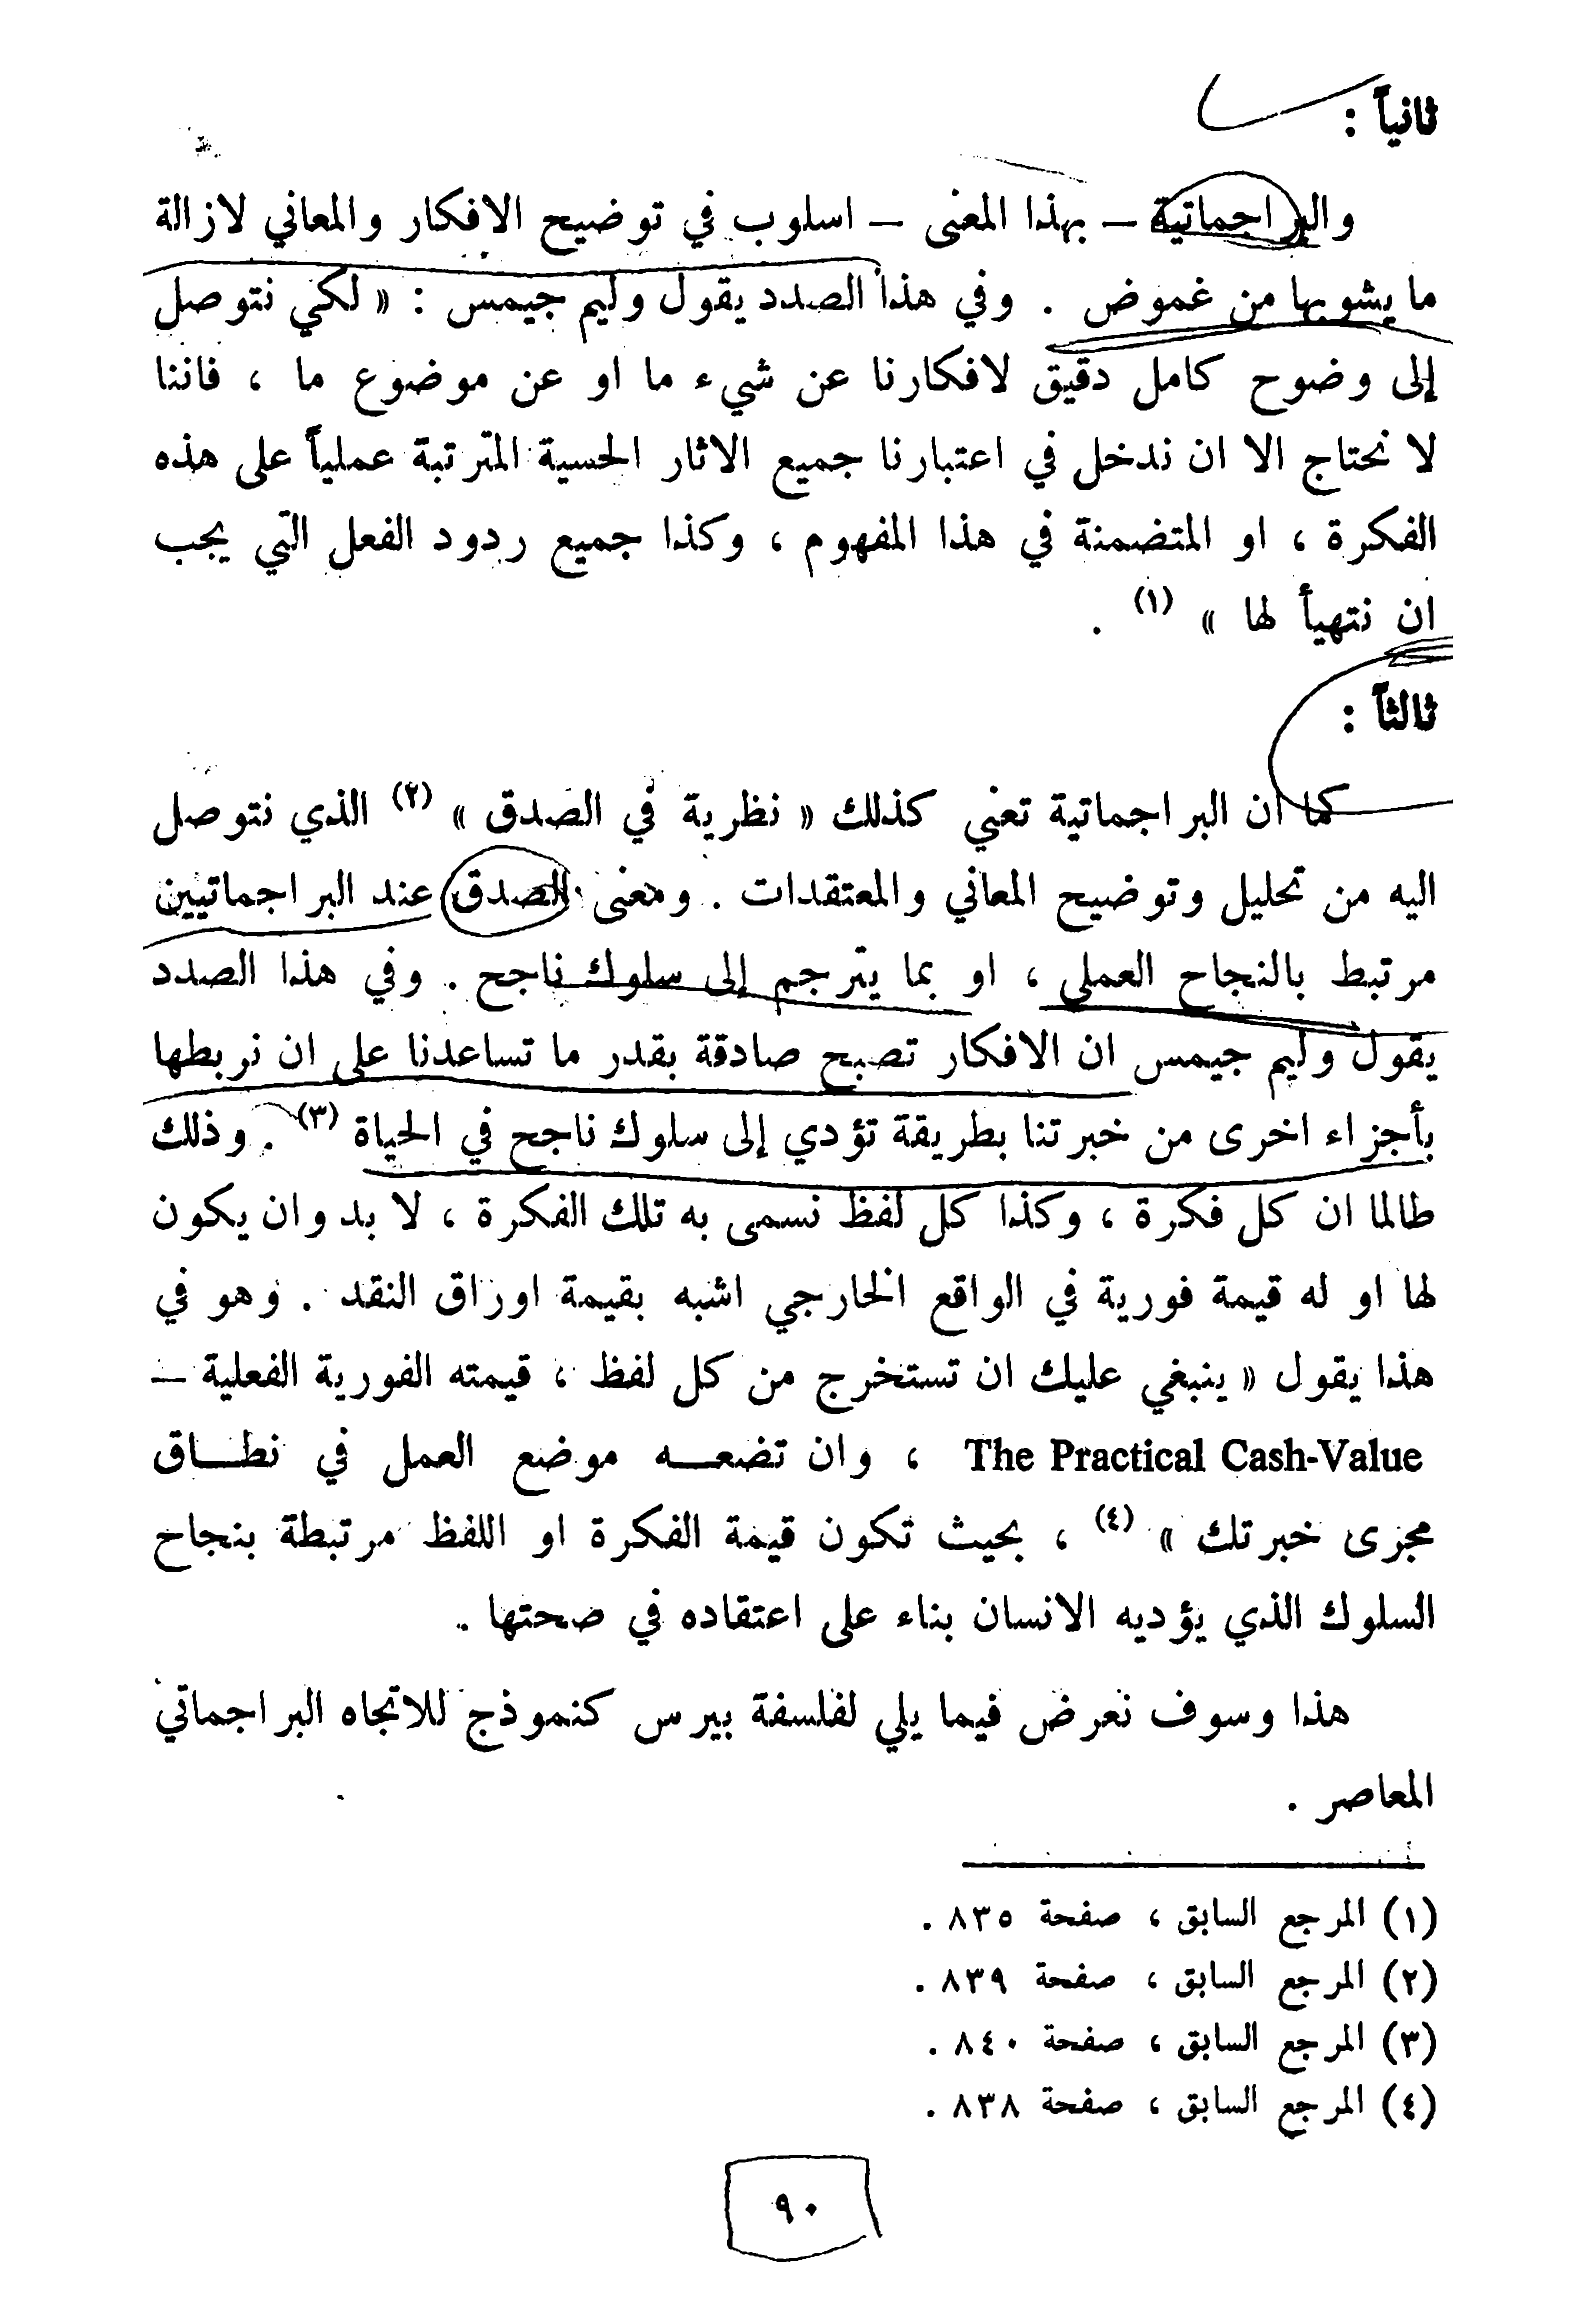 ثانياً :
والبراجماتية – بهذا المعنى – اسلوب في توضيح الافكار والمعاني لازالة
ما يشوبها من غموض . وفي هذا الصدد يقول وليم جيمس : « لكي نتوصل
إلى وضوح كامل دقيق لافكارنا عن شيء ما او عن موضوع ما ، فاننا
لا نحتاج الا ان ندخل في اعتبارنا جميع الاثار الحسية المترتبة عملياً على هذه
الفكرة ، او المتضمنة في هذا المفهوم ، وكذا جميع ردود الفعل التي يجب
ان نتهيأ لها » (١) .
ثالثاً :
كما ان البراجماتية تعني كذلك « نظرية في الصدق » (٢) الذي نتوصل
اليه من تحليل وتوضيح المعاني والمعتقدات . ومعنى الصدق عند البراجماتيين
مرتبط بالنجاح العملي ، او بما يترجم إلى سلوك ناجح . وفي هذا الصدد
يقول وليم جيمس ان الافكار تصبح صادقة بقدر ما تساعدنا على ان نربطها
بأجزاء اخرى من خبرتنا بطريقة تؤدي إلى سلوك ناجح في الحياة (٣) . وذلك
طالما ان كل فكرة ، وكذا كل لفظ نسمى به تلك الفكرة ، لا بد وان يكون
لها او له قيمة فورية في الواقع الخارجي اشبه بقيمة اوراق النقد . وهو في
هذا يقول « ينبغي عليك ان تستخرج من كل لفظ ، قيمته الفورية الفعلية –
The Practical Cash-Value ، وان تضعـــه موضع العمل في نطـــاق
مجرى خبرتك » (٤) ، بحيث تكون قيمة الفكرة او اللفظ مرتبطة بنجاح
السلوك الذي يؤديه الانسان بناء على اعتقاده في صحتها .
هذا وسوف نعرض فيما يلي لفلسفة بيرس كنموذج للاتجاه البراجماتي
المعاصر .
(١) المرجع السابق ، صفحة ٨٣٥ .
(٢) المرجع السابق ، صفحة ٨٣٩ .
(٣) المرجع السابق ، صفحة ٨٤٠ .
(٤) المرجع السابق ، صفحة ٨٣٨ .
٩٠